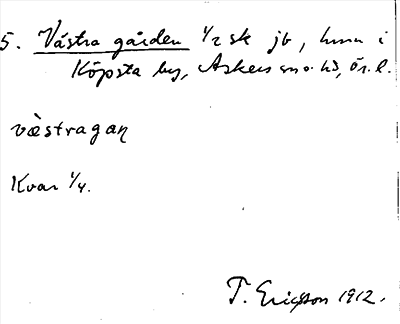 5. Västra gården 1/2 sk jb, hmn i
Köpsta by, Askers sn o. hd, Ör. l.
vèstragaṇ
Kvar 1/4.
T. Ericsson 1912.